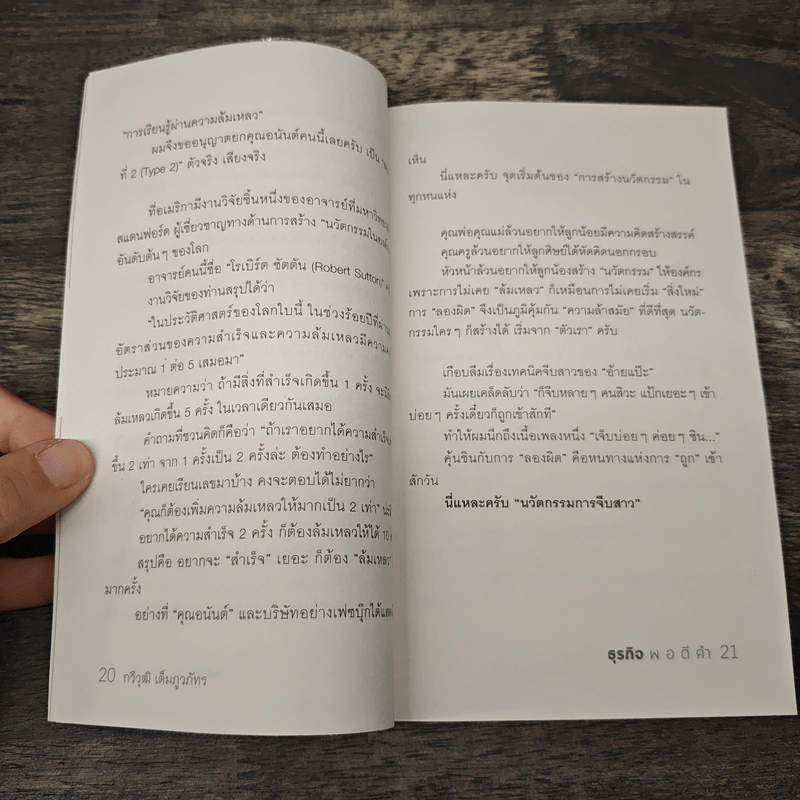 "การเรียนรู้ผ่านความล้มเหลว"
ผมจึงขออนุญาตยกคุณอนันต์คนนี้เลยครับ เป็น
ที่ 2 (Type 2)" ตัวจริง เสียงจริง
ที่อเมริกามีงานวิจัยชิ้นหนึ่งของอาจารย์ที่
สแตนฟอร์ด ผู้เชี่ยวชาญทางด้านการสร้าง "นวัตกรรม
อันดับต้นๆ ของโลก
อาจารย์คนนี้ชื่อ "โรเบิร์ต ซัตตัน (Robert Sutton)"
งานวิจัยของท่านสรุปได้ว่า
"ในประวัติศาสตร์ของโลกใบนี้ ในช่วงร้อยปีที่
อัตราส่วนของความสำเร็จและความล้มเหลวมี
ประมาณ 1 ต่อ 5 เสมอมา"
หมายความว่า ถ้ามีสิ่งที่สำเร็จเกิดขึ้น 1 ครั้ง
ล้มเหลวเกิดขึ้น 5 ครั้ง ในเวลาเดียวกันเสมอ
คำถามที่ชวนคิดก็คือว่า "ถ้าเราอยากได้ความสำเร็จ
ขึ้น 2 เท่า จาก 1 ครั้งเป็น 2 ครั้งล่ะ ต้องทำอย่างไร"
ใครเคยเรียนเลขมาบ้าง คงจะตอบได้ไม่ยากว่า
"คุณก็ต้องเพิ่มความล้มเหลวให้มากเป็น 2 เท่า"
อยากได้ความสำเร็จ 2 ครั้ง ก็ต้องล้มเหลวให้ได้ 10
สรุปคือ อยากจะ "สำเร็จ" เยอะ ก็ต้อง "ล้มเหลว"
มากครั้ง
อย่างที่ "คุณอนันต์" และบริษัทอย่างเฟซบุ๊กได้
20 กวีวุฒิ เต็มภูวภัทร
เห็น
นี่แหละครับ จุดเริ่มต้นของ "การสร้างนวัตกรรม" ใน
ทุกหนแห่ง
คุณพ่อคุณแม่ล้วนอยากให้ลูกน้อยมีความคิดสร้างสรรค์
คุณครูล้วนอยากให้ลูกศิษย์ได้หัดคิดนอกกรอบ
หัวหน้าล้วนอยากให้ลูกน้องสร้าง "นวัตกรรม" ให้องค์กร
เพราะการไม่เคย "ล้มเหลว" ก็เหมือนการไม่เคยเริ่ม "สิ่งใหม่"
การ "ลองผิด" จึงเป็นภูมิคุ้มกัน "ความล้าสมัย" ที่ดีที่สุด นวัต-
กรรมใครๆ ก็สร้างได้ เริ่มจาก "ตัวเรา" ครับ
เกือบลืมเรื่องเทคนิคจีบสาวของ "อ้ายแป๊ะ"
มันเผยเคล็ดลับว่า "ก็จีบหลายๆ คนสิวะ แป้กเยอะๆ เข้า
บ่อยๆ ครั้งเดี๋ยวก็ถูกเข้าสักที"
ทำให้ผมนึกถึงเนื้อเพลงหนึ่ง "เจ็บบ่อยๆ ค่อยๆ ชิน..."
คุ้นชินกับการ "ลองผิด" คือหนทางแห่งการ "ถูก" เข้า
สักวัน
นี่แหละครับ "นวัตกรรมการจีบสาว"
ธุรกิจ พอดีคำ 21